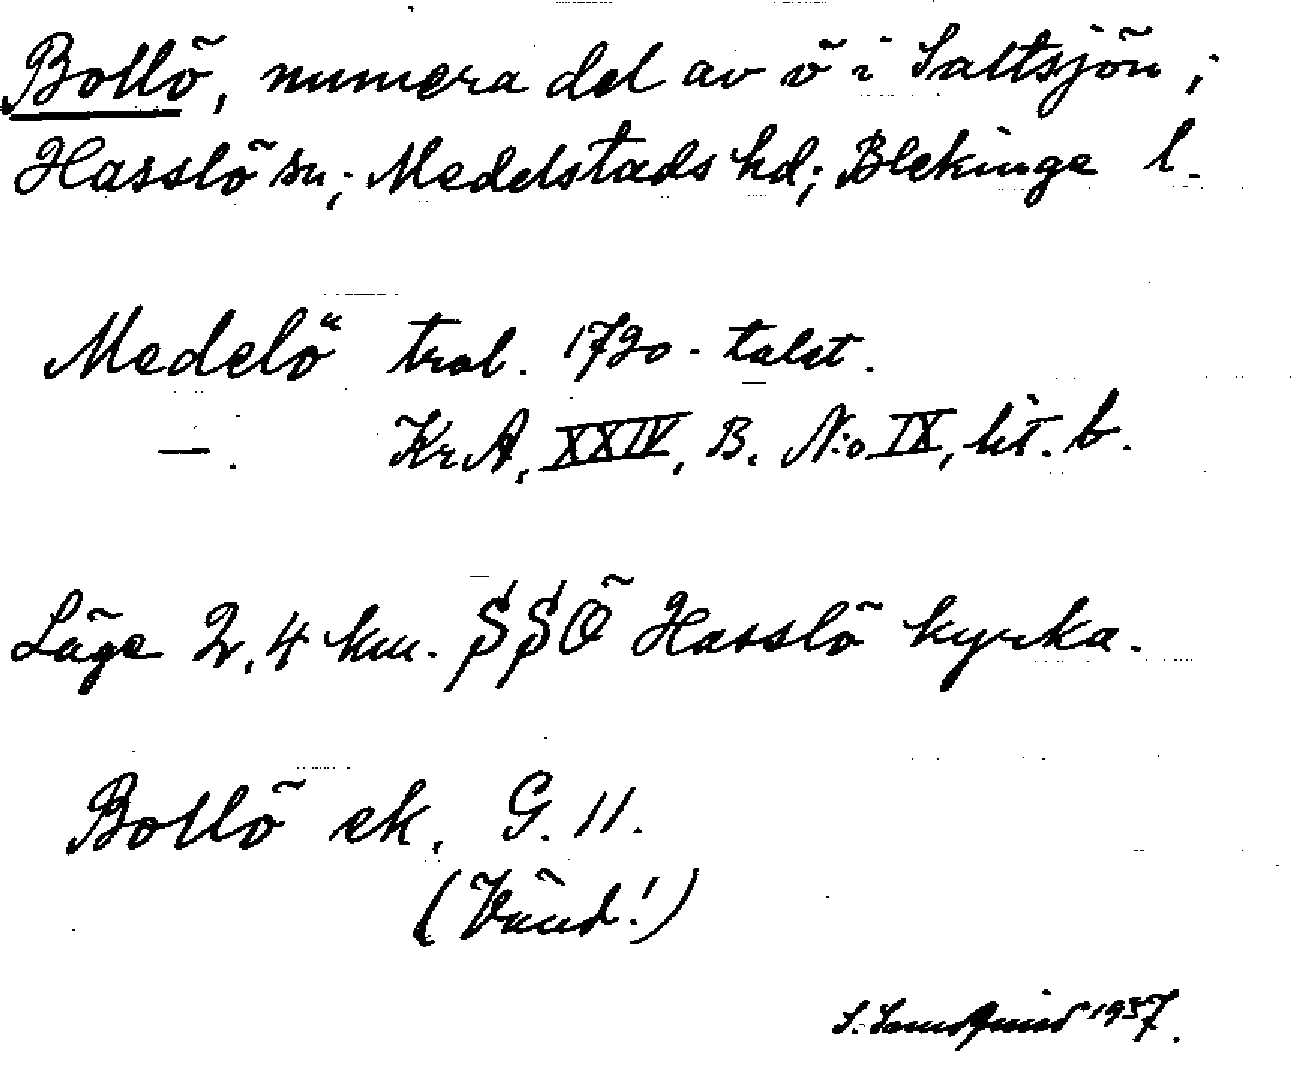 Bollö, numera del av ö i Saltsjön,
Hasslö sn; Medelstads hd; Blekinge l.
Medelö trol. 1720-talet.
—. KrA, XXIV, B. N:o IX, lit. b.
Läge 2,4 km. SSÖ Hasslö kyrka.
Bollö ek, G. 11.
(Vänd!)
S. 1937.